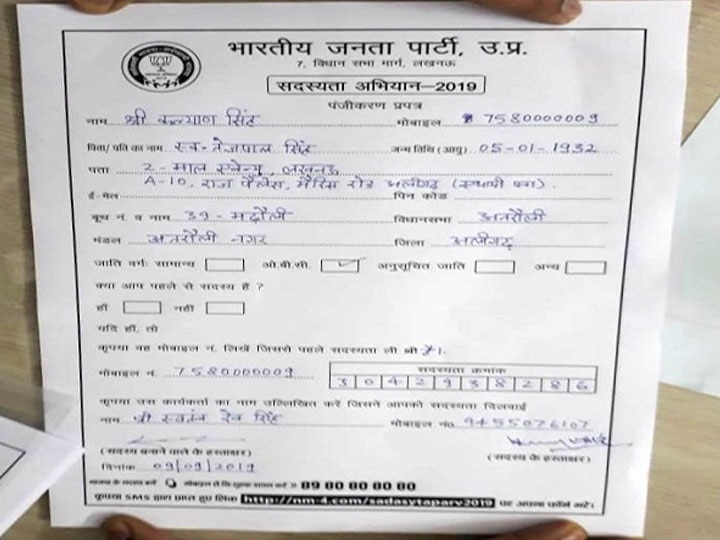 भारतीय जनता पार्टी, उ.प्र.
7, विधान सभा मार्ग, लखनऊ
सदस्यता अभियान–2019
पंजीकरण प्रपत्र
नाम श्री कल्याण सिंह मोबाइल 7580000009
पिता/ पति का नाम स्व॰ तेजपाल सिंह जन्म तिथि (आयु) 05-01-1932
पता 2- माल एवेन्यू, लखनऊ
A-10, राज पैलेस, मैरिस रोड अलीगढ़ (स्थायी पता).
ई-मेल पिन कोड
बूथ नं. व नाम 39- मढ़ौली विधानसभा अतरौली
मंडल अतरौली नगर जिला अलीगढ़
जाति वर्ग: सामान्य ओ.बी.सी. ✓ अनुसूचित जाति अन्य
क्या आप पहले से सदस्य हैं ?
हाँ नहीं
यदि हाँ, तो
कृपया वह मोबाइल नं. लिखें जिससे पहले सदस्यता ली थी है।
मोबाइल नं. 7580000009 सदस्यता क्रमांक
3042938286
कृपया उस कार्यकर्ता का नाम उल्लिखित करें जिसने आपको सदस्यता दिलवाई
नाम श्री स्वतंत्र देव सिंह मोबाइल न० 9455076107
(सदस्य बनाने वाले के हस्ताक्षर) (सदस्य के हस्ताक्षर)
दिनांक 09/09/2019
89 80 80 80 80
कृपया SMS द्वारा प्राप्त हुए लिंक http://nm-4.com/sadasytaparv2019 पर अपना फॉर्म भरें।